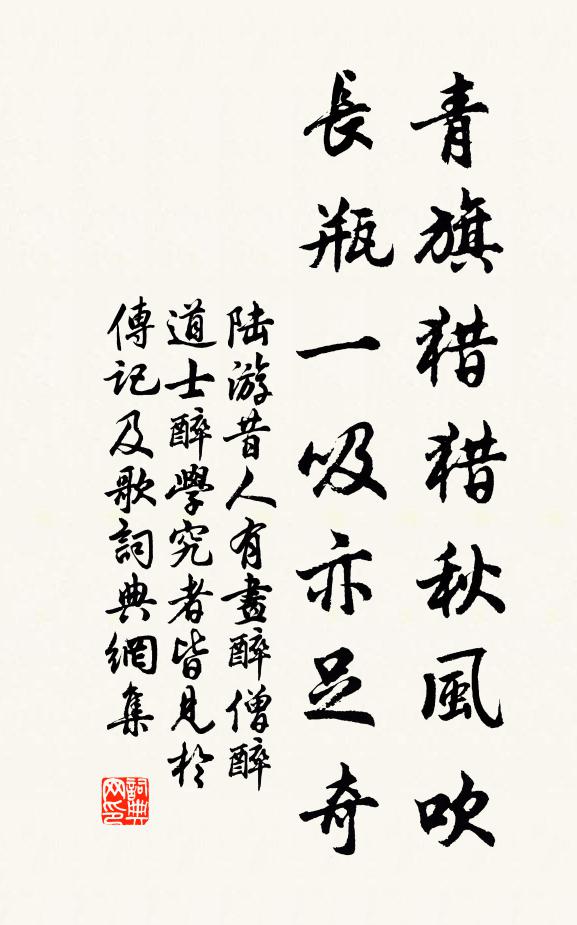 青旗猎猎秋風吹
長瓶一吸亦足奇
陆游昔人有畫醉僧醉
道士醉學究者皆見於
傳記及歌詞典網集
詞典網印